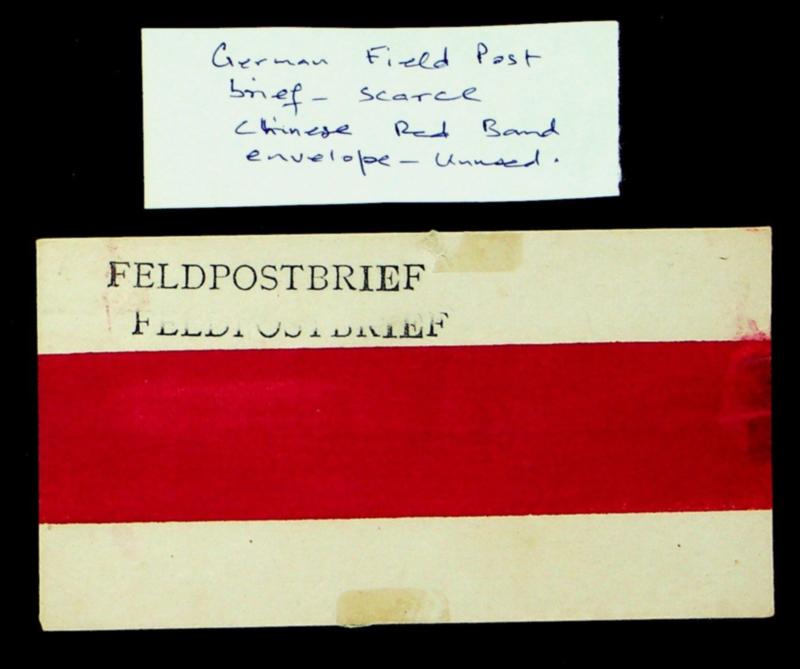 German Field Post
brief - scarce
Chinese Red Band
envelope - Unused.
FELDPOSTBRIEF
FELDPOSTBRIEF